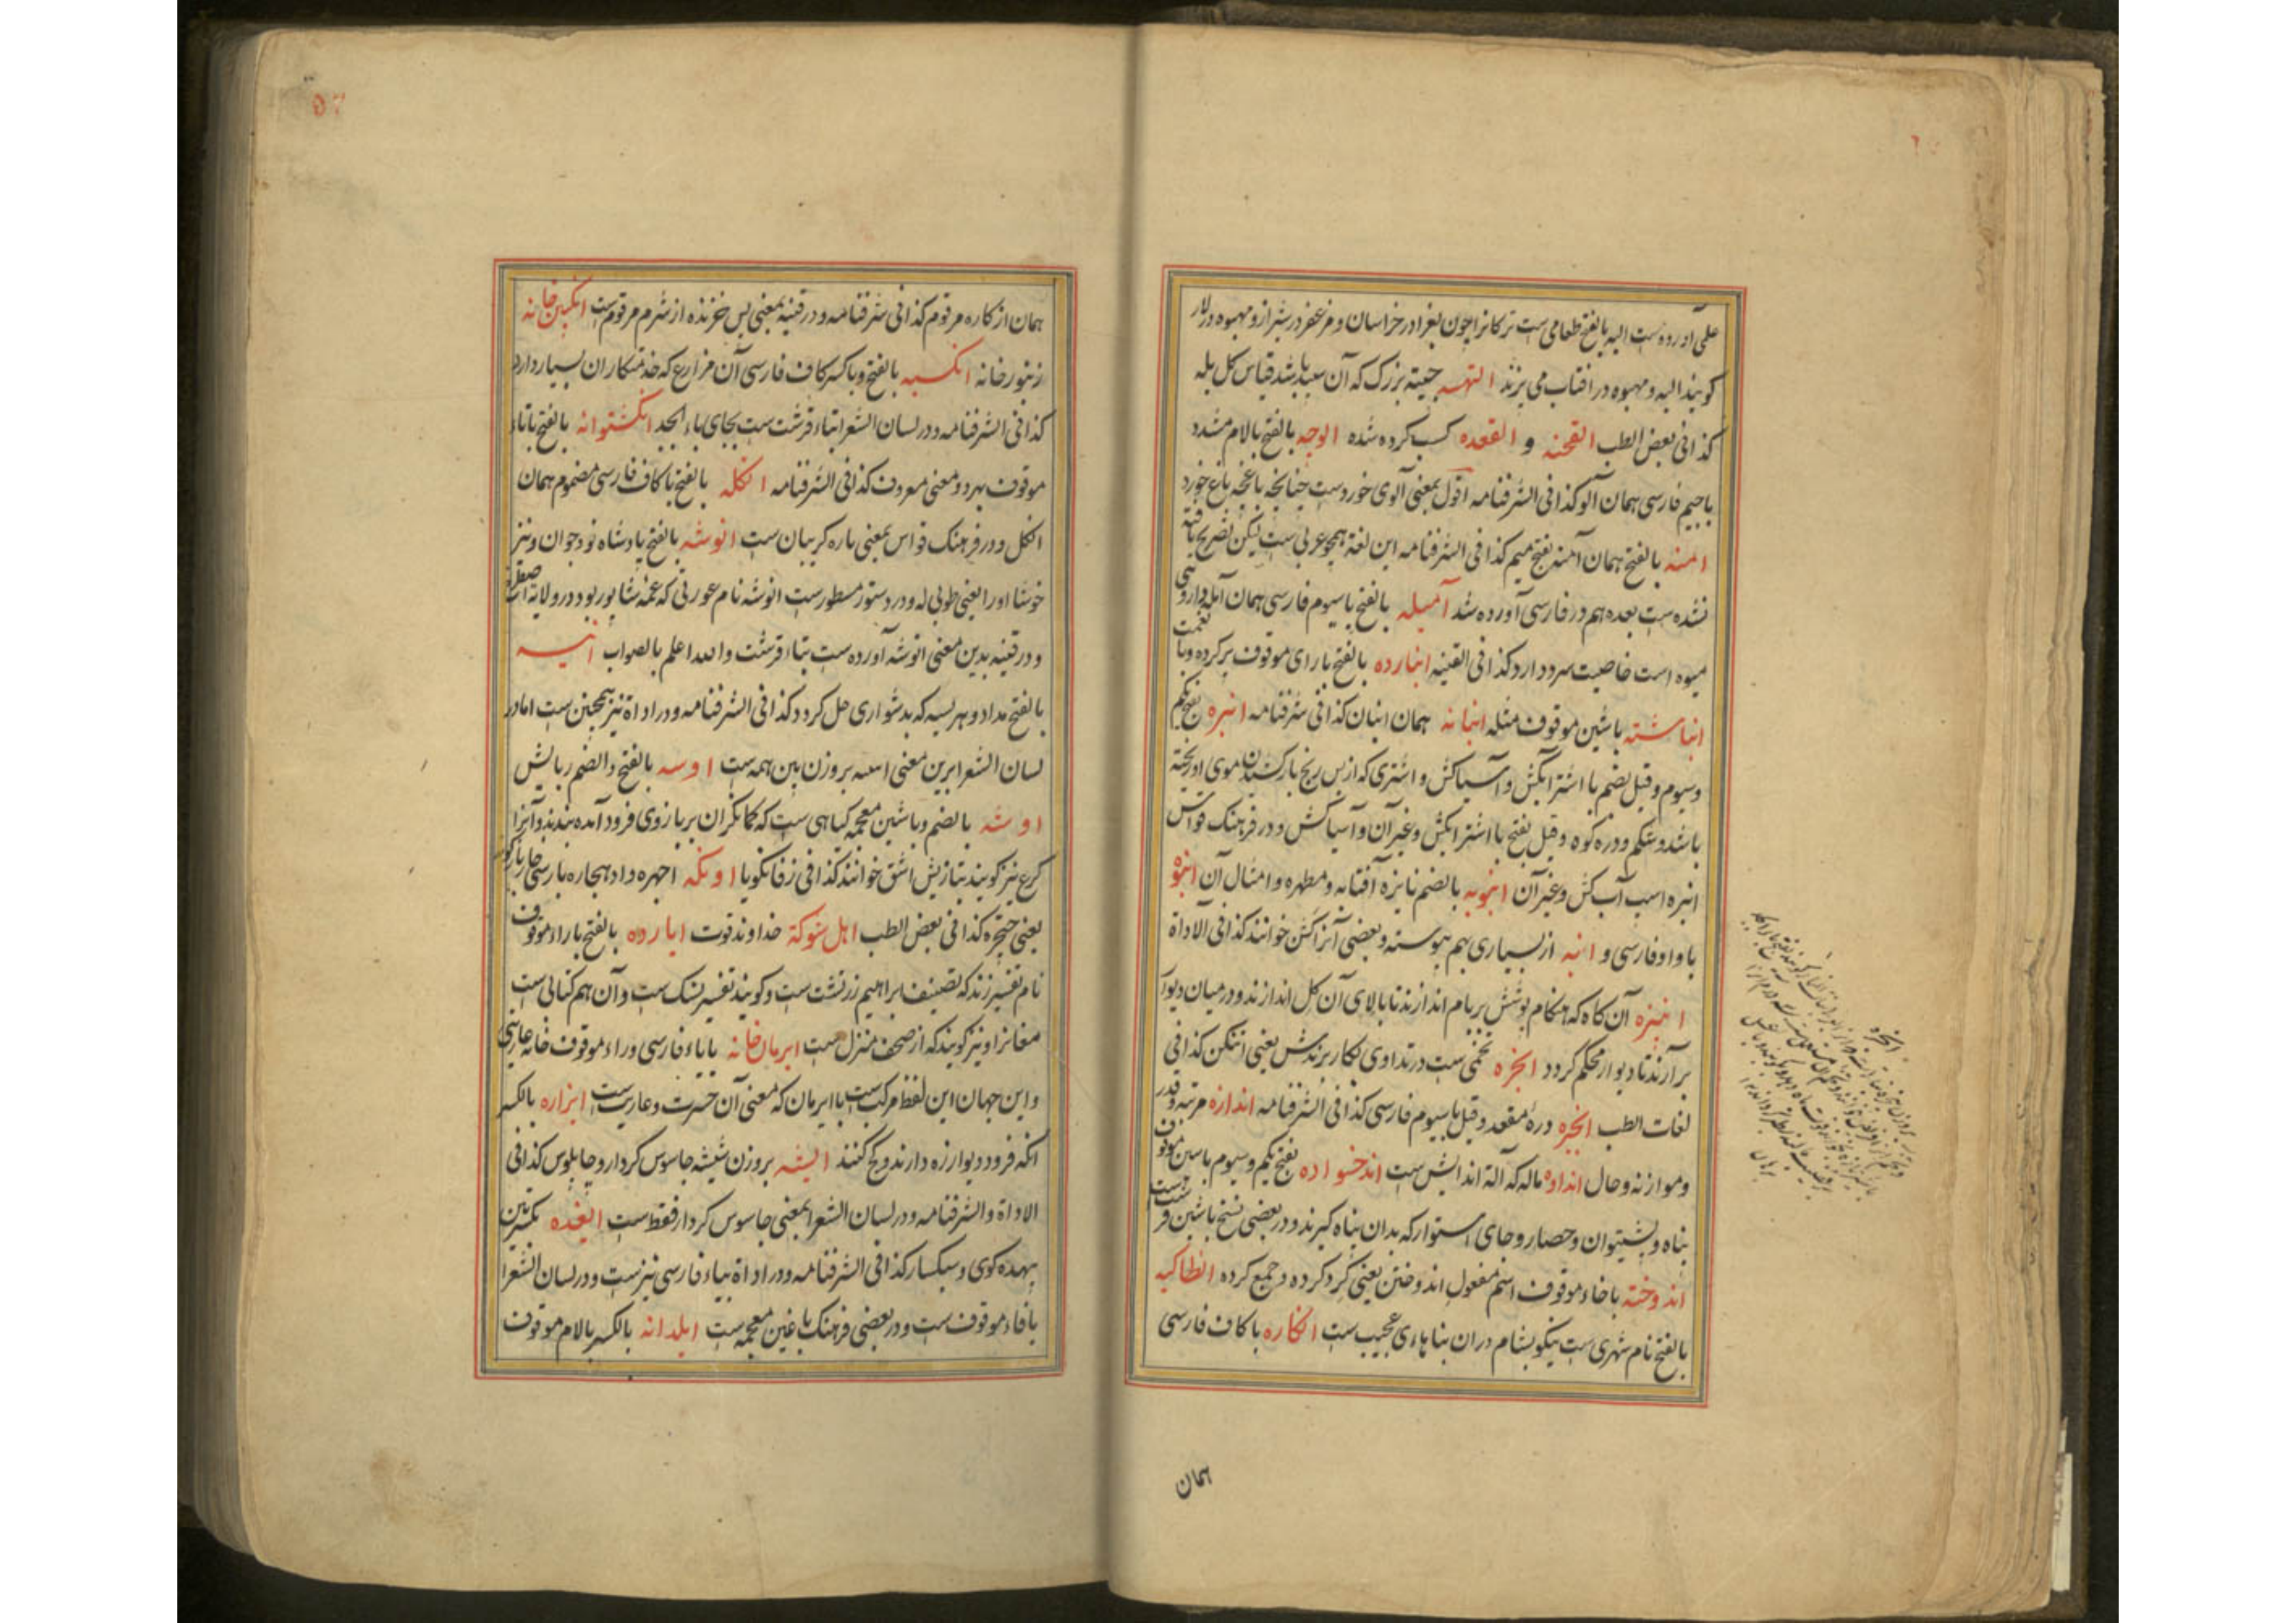 علی آورده ست الیه بالفتح طعامی ست ترکانرا چون بغرا در خراسان و مزعفر در شیراز و مهبوه در لار
کویند الیه و مهبوه در افتاب می پزند التهسه جیته بزرک که آن سعید باشد قیاس کل پله
کذا فی بعض الطب القحنه و القعده کسب کرده شده الوجه بالفتح بالام مشدد
باجیم فارسی همان آلو کذا فی الشرفنامه اقول بمعنی آلوی خوردست چنانچه باغچه باغ خورد
امنه بالفتح همان آمنه بفتح میم کذا فی الشرفنامه این لغة همچو عربی ست لیکن تصریح یافته
نشده ست بعده هم در فارسی آورده شد آمیله بالفتح باسیوم فارسی همان آمله دارو
میوه است خاصیت سرد دارد کذا فی القنیه انبارده بالفتح بارای موقوف پر کرده و با نعمت
انباشته باشین موقوف مثله انبانه همان انبان کذا فی شرفنامه انبره بفتح یکم
وسیوم وقیل بضم با اشتر آبکش و آسیاکش و اشتری که از بس رنج بار کشیدن موی او ریخته
باشد و شکم و دره کوه وقیل بفتح با اشتر آبکش و غیر آن و آسیاکش و در فرهنک قواس
انبره اسب آب کش و غیر آن انبوبه بالضم نایزه آفتابه و مطهره و امثال آن انبوه
باواو فارسی و انبه از بسیاری بهم پیوسته و بعضی آنرا کشن خوانند کذا فی الاداة
انبیره آن کاه که هنکام پوشش بر بام اندازند تا بالای آن کل اندازند و در میان دیوار
بر آرند تا دیوار محکم گردد انجره تخمی ست در تداوی بکار برندش یعنی اتنکن کذا فی
لغات الطب انجیره دره مقعد وقیل باسیوم فارسی کذا فی الشرفنامه اندازه مرتبه و قدر
و موازنه و حال انداوه ماله که آلة اندایش ست اندخسواده بفتح یکم وسیوم باسین موقوف
پناه و پشتیوان و حصار و جای استوار که بدان پناه گیرند و در بعضی نسخ باشین قرشت ست
اندوخته باخاء موقوف اسم مفعول اندوختن یعنی گرد کرده و جمع کرده انطاکیه
بالفتح نام شهری ست نیکو بشام دران بناهاءی عجیب ست انکاره باکاف فارسی
همان
همان ازکاره مرقوم کذا فی شرفنامه و در قنیه بمعنی پس خزنده از شرم مرقوم ست انکبین خانه
زنبور خانه انکسبه بالفتح و باکسر کاف فارسی آن مزارع که خدمتکاران بسیار دارد
کذا فی الشرفنامه و در لسان الشعرا بتاء قرشت ست بجای باء ابجد انکشتوانه بالفتح باتاء
موقوف بهر دو معنی معروف کذا فی الشرفنامه انکله بالفتح باکاف فارسی مضموم همان
انکل و در فرهنک قواس بمعنی پاره کریبان ست انوشه بالفتح پادشاه نوجوان و نیز
خوشا اورا یعنی طوبی له و در دستور مسطورست انوشه نام عورتی که عمه شاپور بود و در ولایة
و در قنیه بدین معنی انوشه آورده ست بتاء قرشت والله اعلم بالصواب انیسه
بالفتح مداد و هریسه که بدشواری حل کردد کذا فی الشرفنامه و در اداة نیز همچنین ست اما در
لسان الشعرا برین معنی اسه بروزن بین همه ست اوسه بالفتح والضم ربایش
اوشه بالضم و باشین معجمه کیاهی ست که کمانکران بر بازوی فرود آمده بندند و آنرا
کرع نیز کویند بتازیش اشق خوانند کذا فی زفانکویا اونکه اجهره و ادهجاره پارسی خار بار کونه
یعنی چتجره کذا فی بعض الطب اهل شوکة خداوند قوت ایارده بالفتح باراء موقوف
نام تفسیر زند که تصنیف ابراهیم زرتشت ست و کویند تفسیر بسک ست و آن هم کتابی ست
مغانرا و نیز کویند که از صحف منزل ست ایرمان خانه بایاء فارسی و راء موقوف خانه عاریتی
و این جهان این لفظ مرکب ست با ایرمان که معنی آن حسرت و عاریت ست ایزاره بالکسر
انکه فرود دیوار زه دارند و کج کنند ایشه بروزن شیشه جاسوس کردار و چاپلوس کذا فی
الاداة والشرفنامه و در لسان الشعرا بمعنی جاسوس کردار فقط ست ایغده بکسرتین
بیهده کوی و سبکسار کذا فی الشرفنامه و در اداة بیاء فارسی نیزست و در لسان الشعرا
بافاء موقوف ست و در بعضی فرهنک باغین معجمه ست ایلدانه بالکسر بالام موقوف